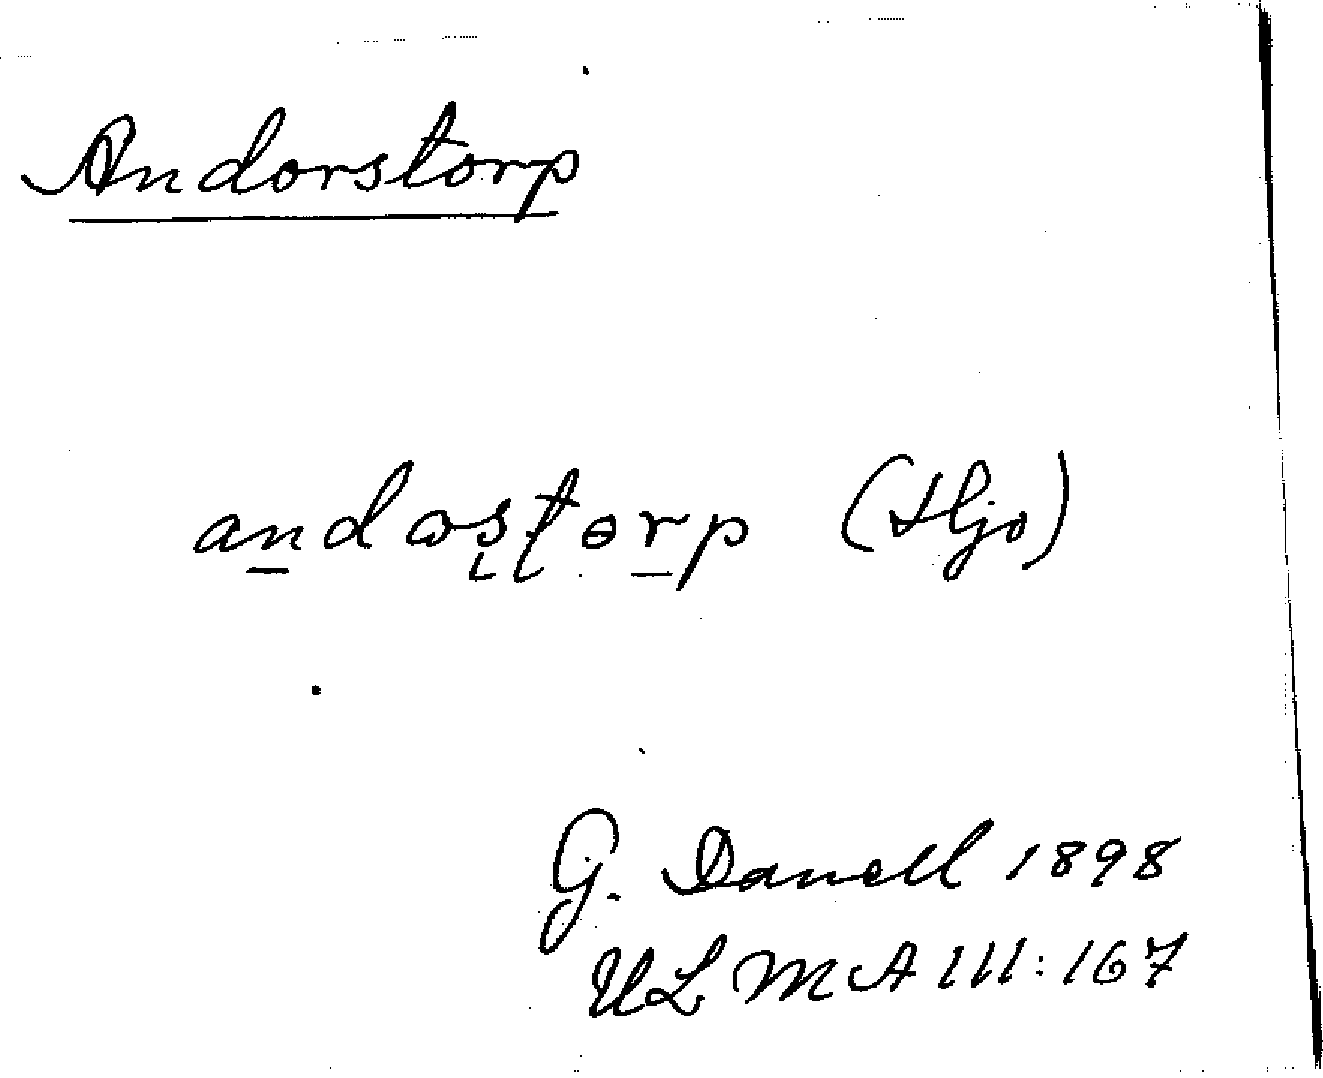 Andorstorp
andωʂʈɵrp (Hjo)
G. Danell 1898
ULMA III:167